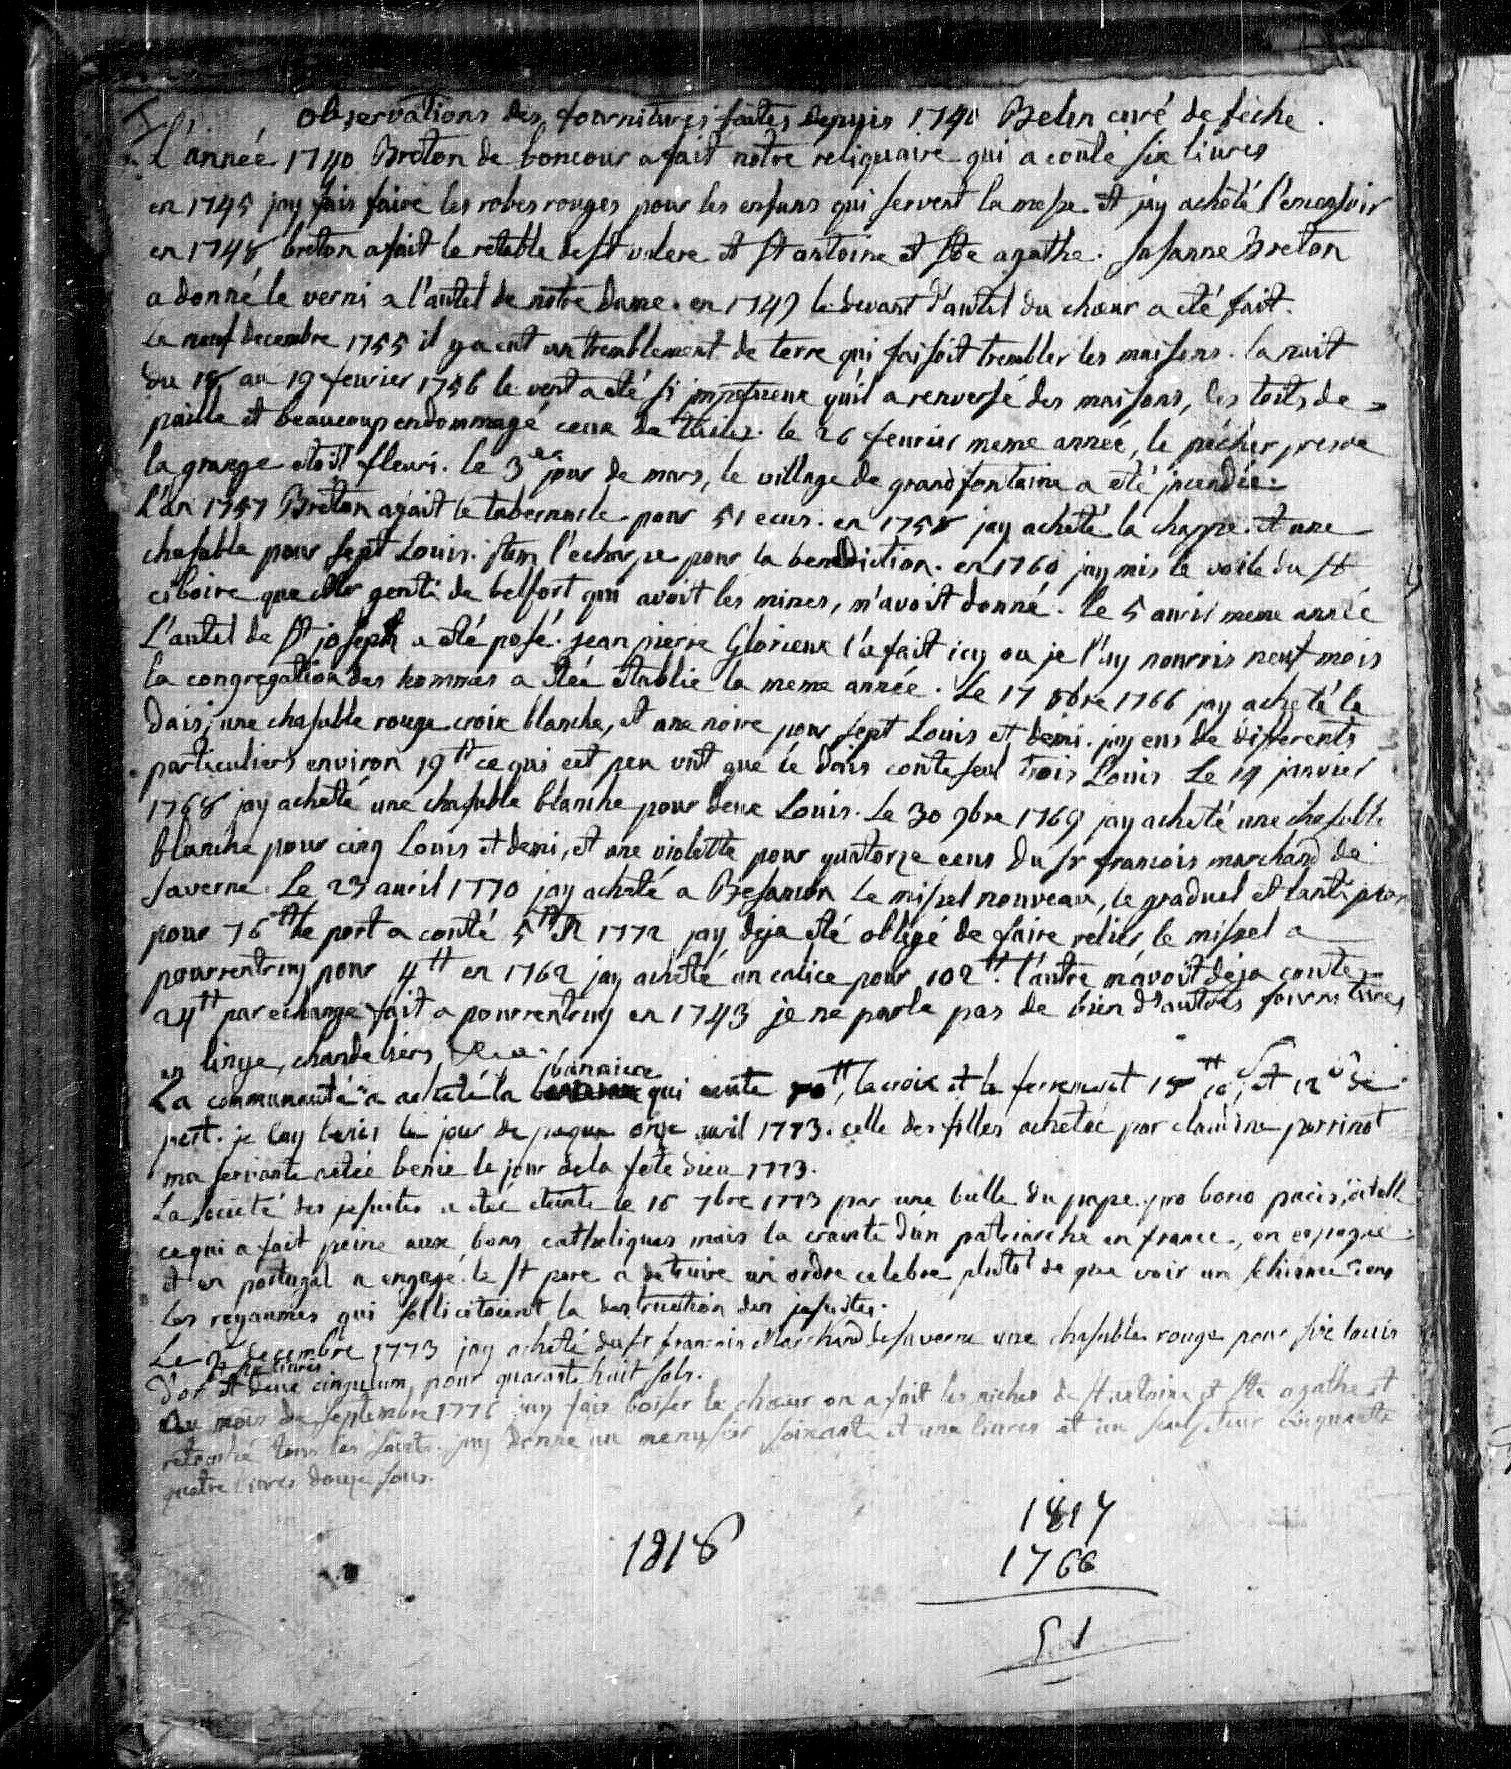 Observations des fournitures faites depuis 1740 Belin curé de fêche.
L'année 1740 Breton de boncour a fait notre reliquaire qui a couté six livres
en 1745 jay fais faire les robes rouges pour les enfans qui servent la messe et jay acheté l'encensoir
en 1748 breton a fait le retable de st valere et st antoine et ste agathe. Susanne Breton
a donné le verni a l'autel de notre dame. en 1749 le devant d'autel du chœur a eté fait.
Le neuf decembre 1755 il y a eut un tremblement de terre qui faisoit trembler les maisons. la nuit
du 18 au 19 fevrier 1756 le vent a eté si impetueux qu'il a renversé des maisons, les toits de
paille et beaucoup endommagé ceux de tuiles. le 26 fevrier meme année, le pécher presde
la grange etoit fleuri. le 3me jour de mars, le village de grandfontaine a eté incendié.
L'an 1757 Breton a fait le tabernacle pour 51 ecus. en 1758 jay acheté la chappe et une
chasuble pour sept Louis. item l'echarpe pour la benediction. en 1760 jay mis le voile du st
ciboire que mr genti de belfort qui avoit les mines, m'avoit donné. le 5 avril meme année
L'autel de st joseph a eté posé. jean pierre Glorieux l'a fait icy ou je l'ay nourris neuf mois
la congregation des hommes a etée etablie la meme année. Le 17 8bre 1766 jay acheté le
dais, une chasuble rouge croix blanche, et une noire pour sept Louis et demi. jay eus de differents
particuliers environ 19tt ce qui est peu vut que le dais coute seul trois Louis Le 19 janvier
1768 jay acheté une chasuble blanche pour deux Louis. Le 30 9bre 1769 jay acheté une chasuble
blanche pour cinq Louis et demi, et une violette pour quatorze ecus du sr francois marchand de
saverne. Le 23 avril 1770 jay acheté a Besancon le missel nouveau, le graduel et l'antiphon
pour 76tt le port a couté 5tt 1772 jay deja eté obligé de faire relier le missel a
pourrentruy pour 4tt en 1762 jay acheté un calice pour 102tt. l'autre m'avoit deja couté
24tt par echange fait a pourrentruy en 1743 je ne parle pas de bien d'autres fournitures
en linge, chandeliers,
bannière
La communauté a acheté la qui coute la croix et le ferrement 15tt et 12 de
port. je l'ay benis le jour de paque onze avril 1773. celle des filles achetée par claudine perrinot
ma servante a etée benie le jour de la fete dieu 1773.
La société des jesuites a eteé eteinte le 16 7bre 1773 par une bulle du pape. pro bono pacis,
ce qui a fait peine aux bons catholiques mais la crainte d'un patriarche en france, en espagne
et en portugal a engagé le st pere a detruire un ordre celebre plutot de que voir un schisme dans
les royaumes qui sollicitoient la destruction des jesuites.
Le decembre 1773 jay acheté du sr francois Marchand de saverne une chasuble rouge pour six louis
six livres
d'or et deux cingulum, pour quarante huit sols.
Au mois de septembre 1776 jay fais boiser le chœur on a fait les niches de st antoine et ste agathe et
retouché tous les saints. jay donné au menusier soixante et une livres et au sculpteur cinquante
quatre livres douze sous.
1817
1818
1766
51